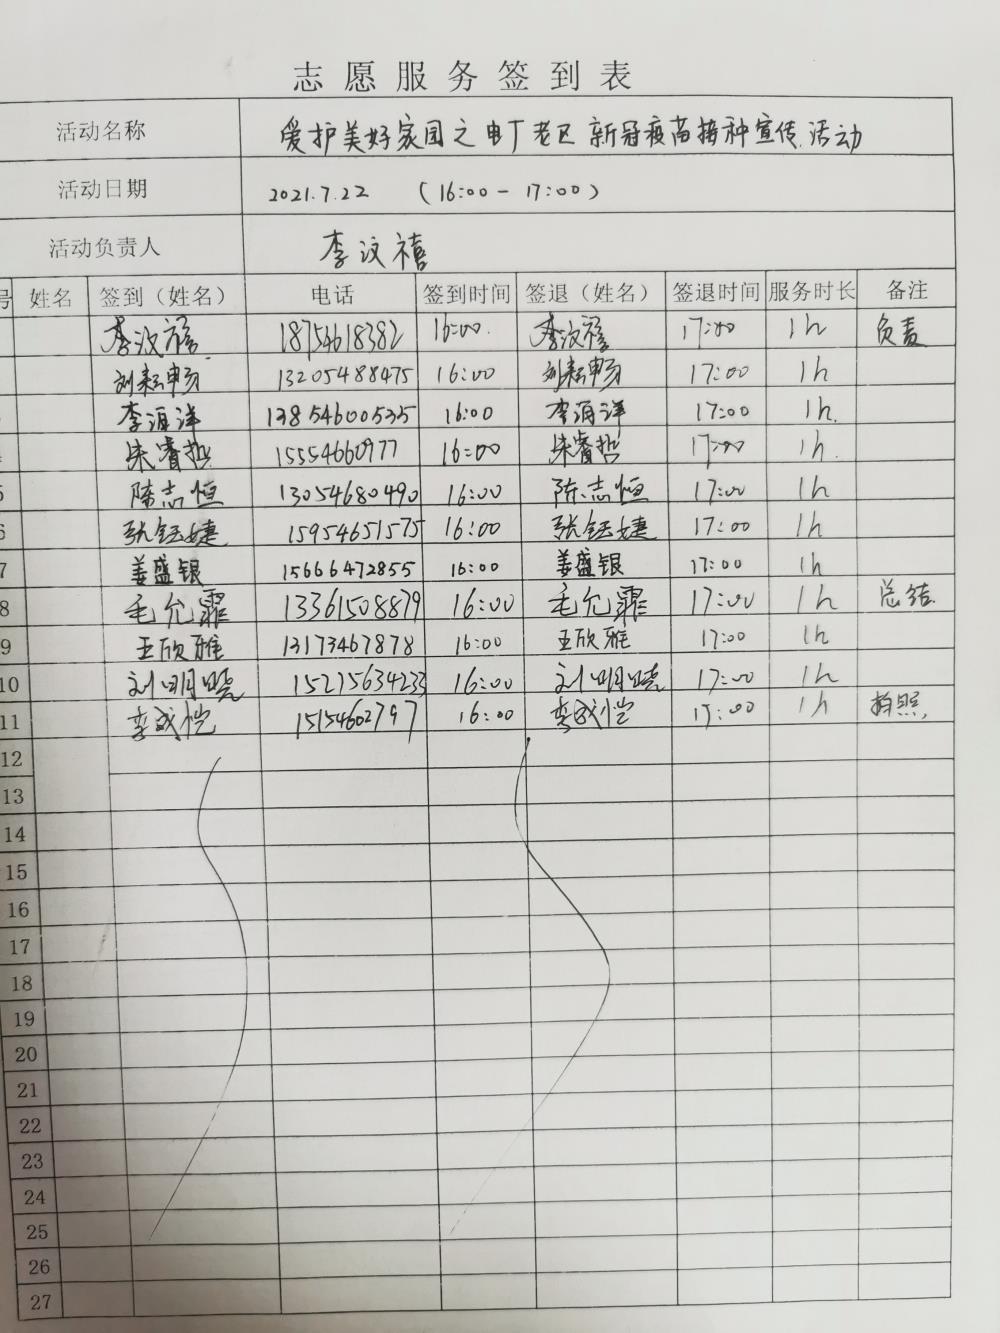 志愿服务签到表
活动名称 爱护美好家园之电厂老区新冠疫苗接种宣传活动
活动日期 2021.7.22 （16:00-17:00）
活动负责人 李汶禧
号 姓名 签到（姓名） 电话 签到时间 签退（姓名） 签退时间 服务时长 备注
李汶禧 18754618382 16:00 李汶禧 17:00 1h 负责
刘耘畅 13205488475 16:00 刘耘畅 17:00 1h
李海洋 13854600535 16:00 李海洋 17:00 1h
朱睿哲 15554660977 16:00 朱睿哲 17:00 1h
5 陈志恒 13054680490 16:00 陈志恒 17:00 1h
6 张钰婕 15954651575 16:00 张钰婕 17:00 1h
7 姜盛银 15666472855 16:00 姜盛银 17:00 1h
8 毛允霏 13361508879 16:00 毛允霏 17:00 1h 总结
9 王欣雅 13173467878 16:00 王欣雅 17:00 1h
10 刘明晓 15275634233 16:00 刘明晓 17:00 1h
11 李成恺 15154602797 16:00 李成恺 17:00 1h 拍照
12
13
14
15
16
17
18
19
20
21
22
23
24
25
26
27